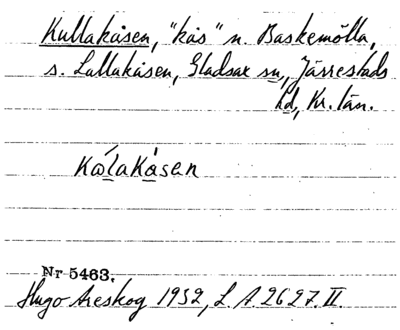 Kullakåsen, "kås" n. Baskemölla,
s. Lallakåsen, Gladsax sn., Järrestads
hd, Kr. län.
Nr 5463.
Hugo Areskog 1932, L A. 2627. II.